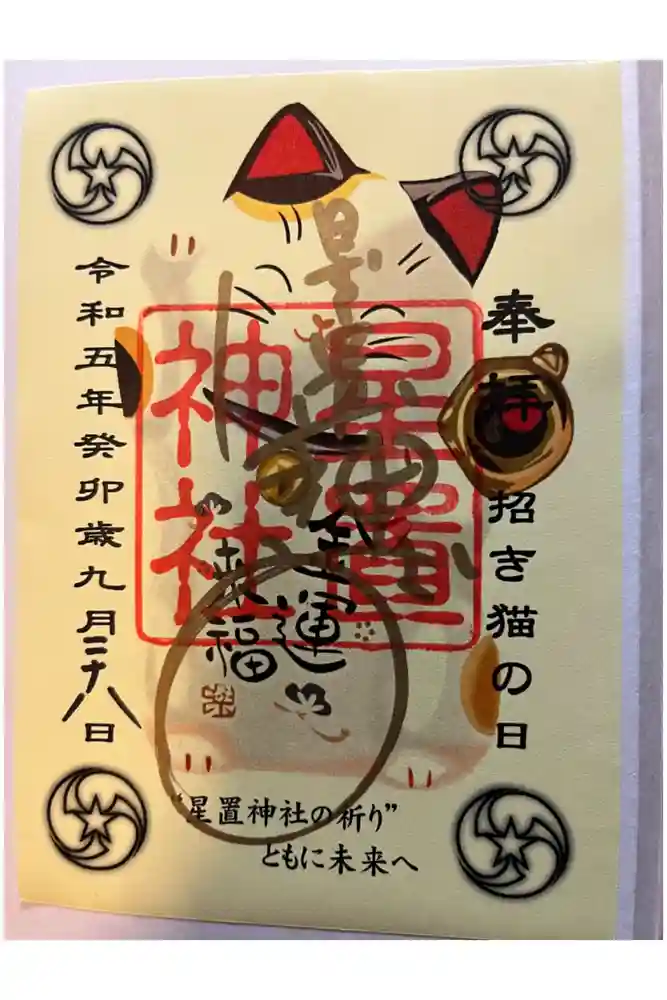 奉拝
招き猫の日
星置神社
星置神社
金運
来福
令和五年癸卯歳九月二十八日
“星置神社の祈り”
ともに未来へ